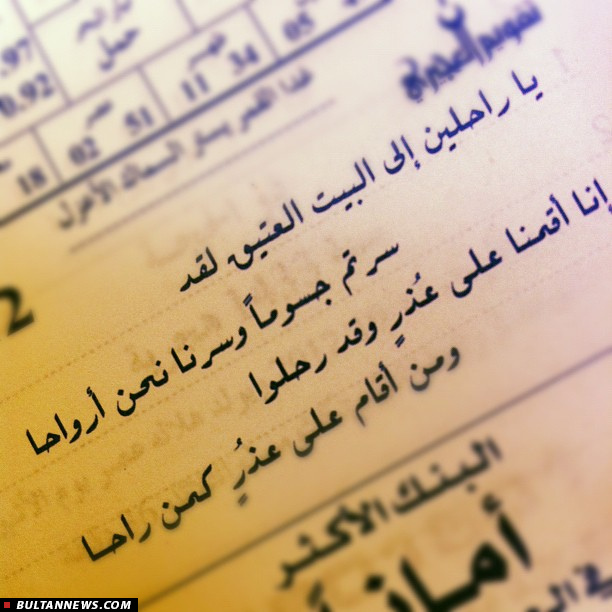 تقويم العجيري
.97
0.92
حمل
05
34 11
عصر
51 02
18
يا راحلين إلى البيت العتيق لقد
سرتم جسوماً وسرنا نحن أرواحا
إنا أقمنا على عُذرٍ وقد رحلوا
ومن أقام على عذرٍ كمن راحا
2
البنك الأكثر
أماناً
في
BULTANNEWS.COM